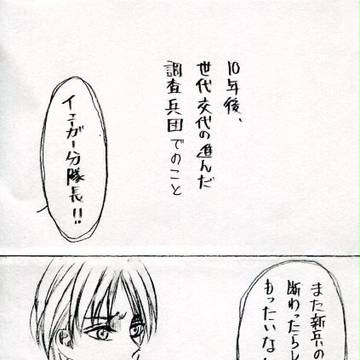 10年後、
世代交代の進んだ
調査兵団でのこと
イェーガー分隊長!!
また新兵の
断わったらし
もったいな